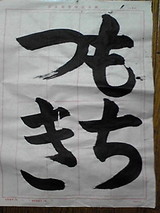 もち
つき